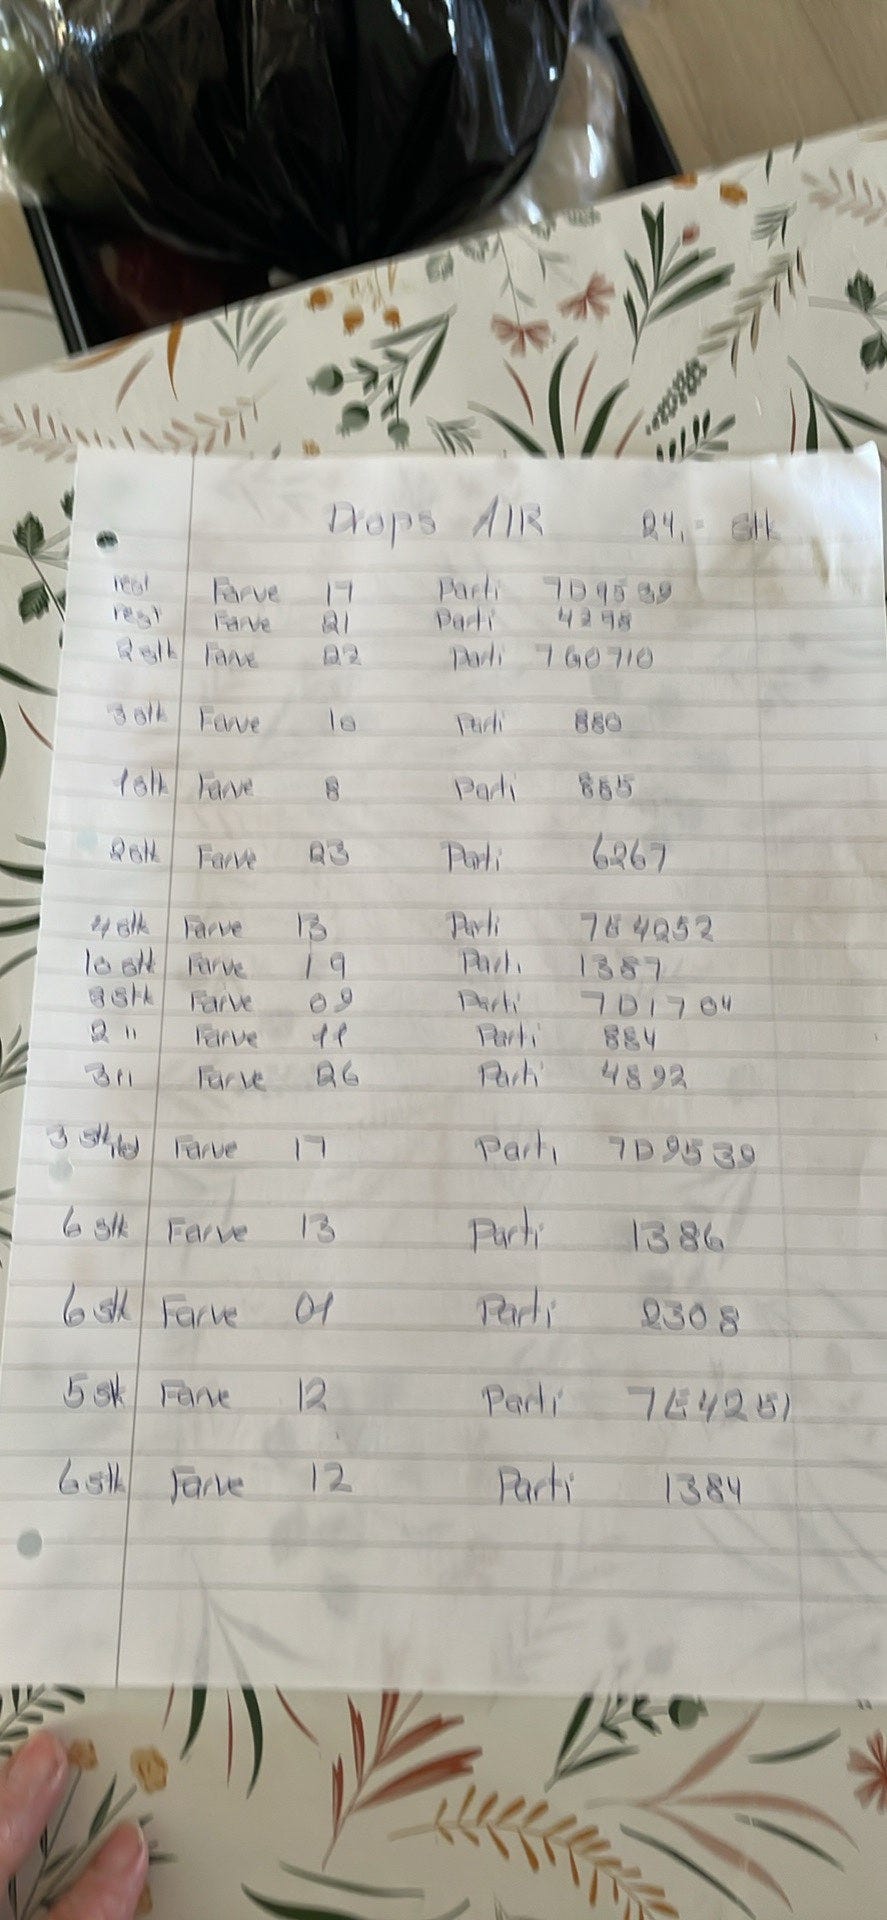 Drops AIR 24,- stk
rest Farve 17 Parti 7D9539
rest Farve 21 Parti 4298
2 stk Farve 22 Parti 760710
3 stk Farve 10 Parti 880
1 stk Farve 8 Parti 885
2 stk Farve 23 Parti 6267
4 stk Farve 13 Parti 7E4252
10 stk Farve 19 Parti 1387
8 stk Farve 09 Parti 7D1704
2 " Farve 11 Parti 884
3 " Farve 26 Parti 4892
3 stk Farve 17 Parti 7D9539
6 stk Farve 13 Parti 1386
6 stk Farve 01 Parti 2308
5 stk Farve 12 Parti 7E4251
6 stk Farve 12 Parti 1384